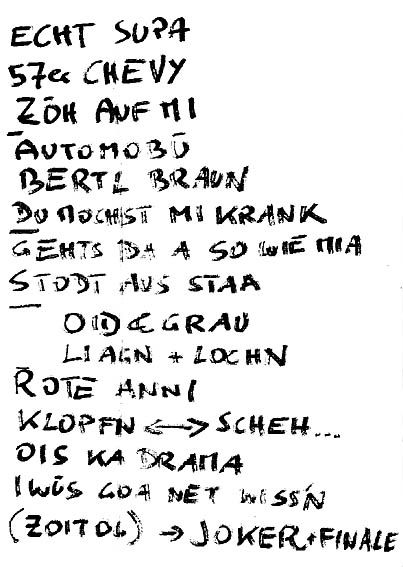 ECHT SUPA
57er CHEVY
ZÖH AUF MI
AUTOMOBÜ
BERTL BRAUN
DU MOCHST MI KRANK
GEHTS DA A SO WIE MIA
STODT AUS STAA
OID & GRAU
LIAGN + LOCHN
ROTE ANNI
KLOPFN <-> SCHEH...
OIS KA DRAMA
I WÜS GOA NET WISS'N
(ZOITOL) → JOKER + FINALE